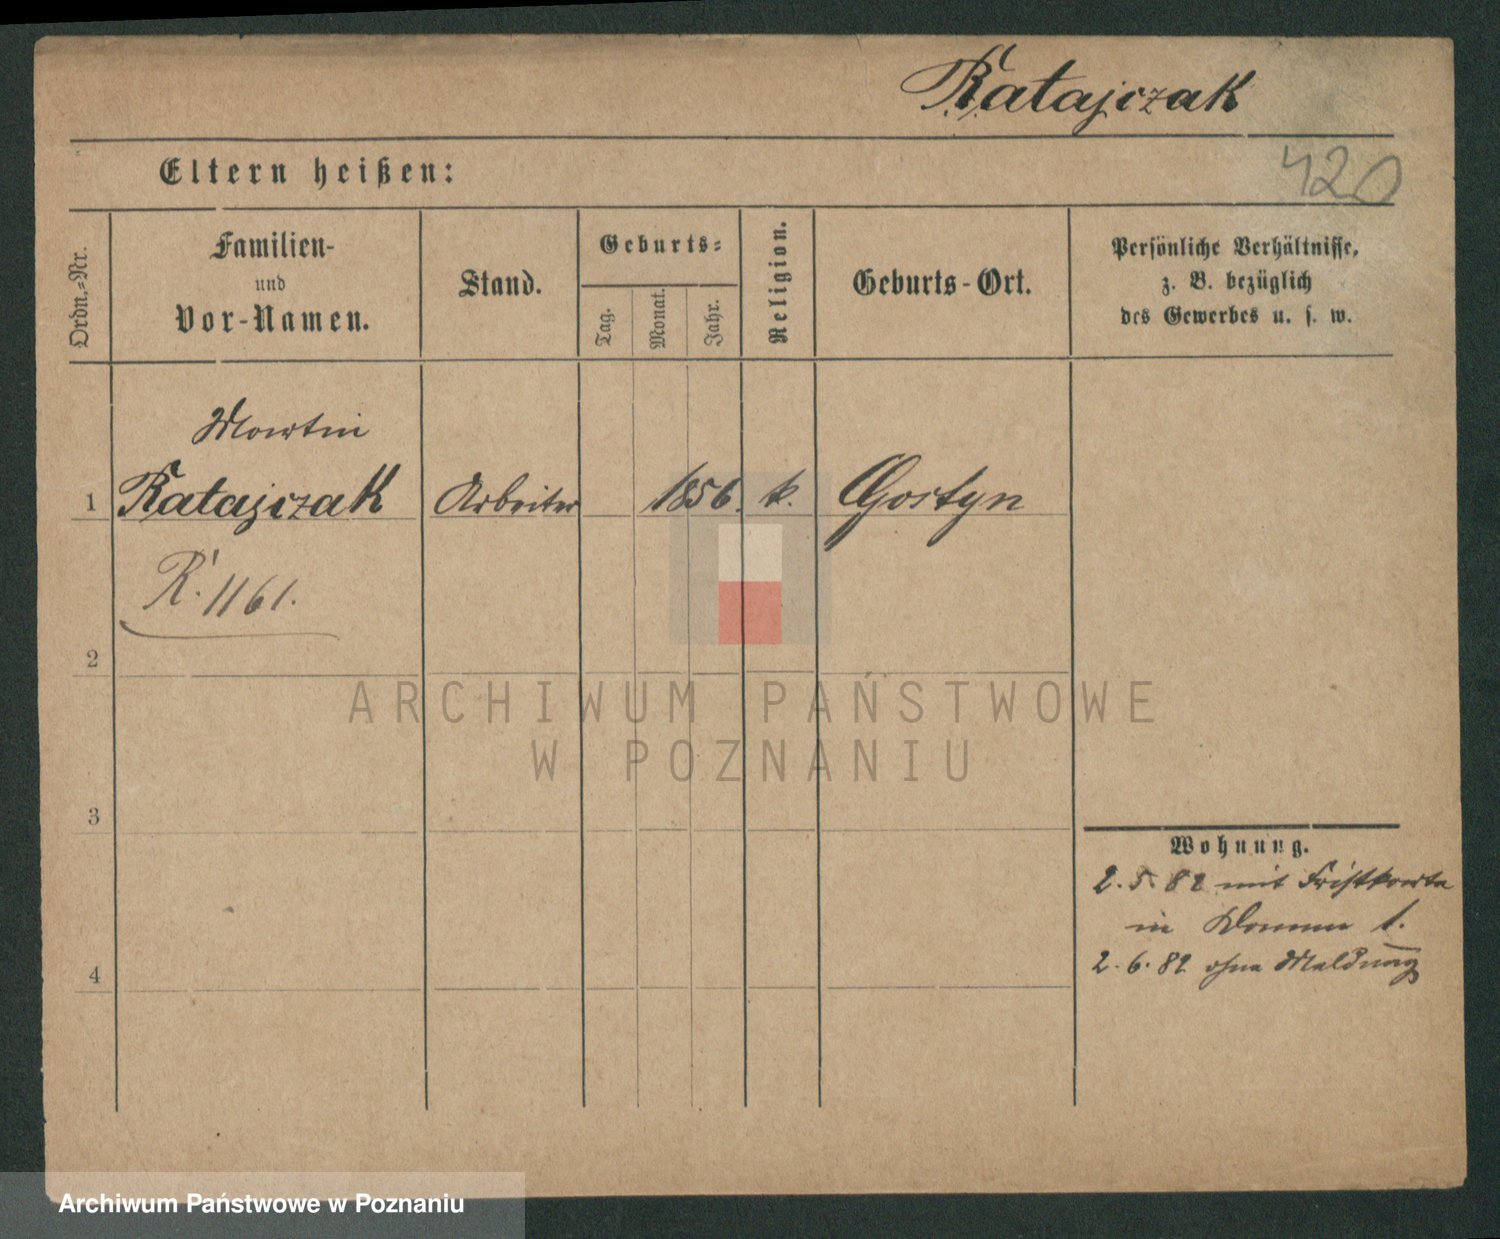 Ratajczak
420
Eltern heißen:
Ordn.-Nr.
Familien-
und
Vor-Namen.
Stand.
Geburts-
Tag.
Monat.
Jahr.
Religion.
Geburts-Ort.
Persönliche Verhältnisse,
z. B. bezüglich
des Gewerbes u. s. w.
Martin
1 Ratajczak Arbeiter 1856. k. Gostyn
R. 1161.
2
ARCHIWUM PAŃSTWOWE
W POZNANIU
3
Wohnung.
2. 5. 82 mit Fristkarte
in 1.
2. 6. 82 ohne Meldung
4
Archiwum Państwowe w Poznaniu